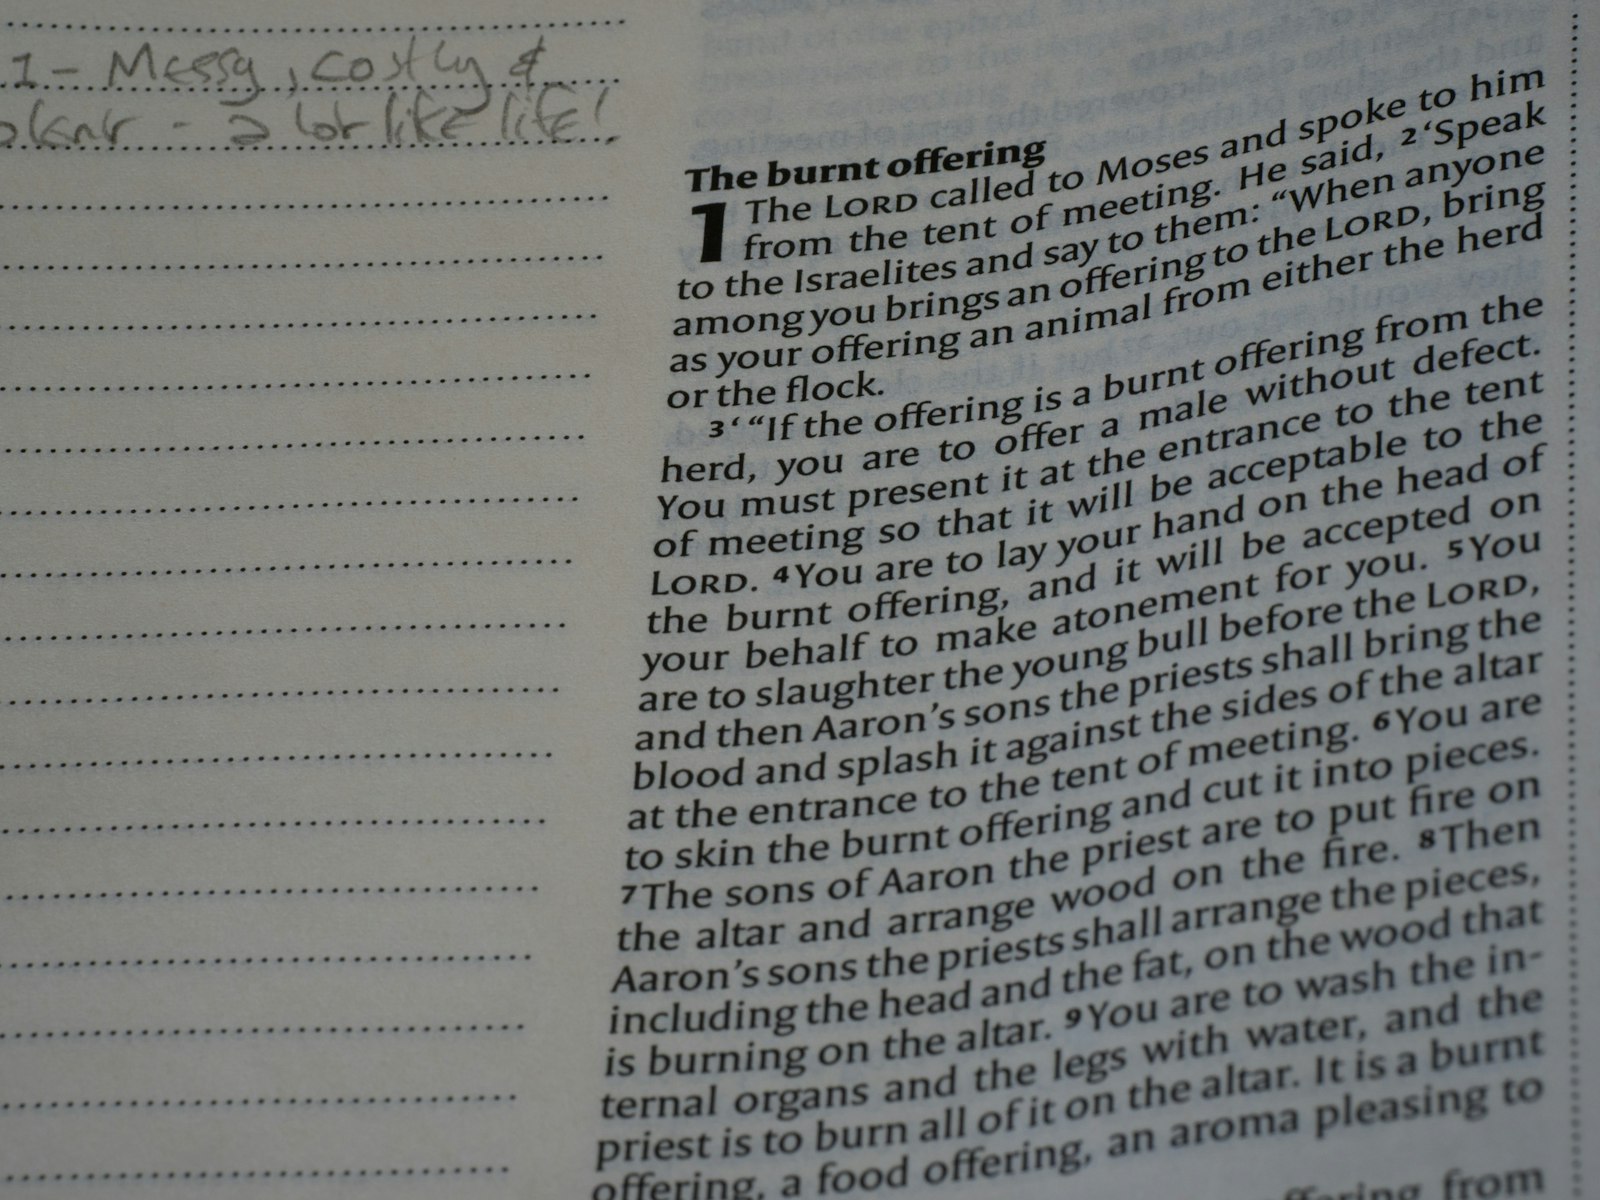 1 – Messy, costly &
– a lot like life!
The burnt offering
1 The LORD called to Moses and spoke to him
from the tent of meeting. He said, 2‘Speak
to the Israelites and say to them: “When anyone
among you brings an offering to the LORD, bring
as your offering an animal from either the herd
or the flock.
3‘ “If the offering is a burnt offering from the
herd, you are to offer a male without defect.
You must present it at the entrance to the tent
of meeting so that it will be acceptable to the
LORD. 4You are to lay your hand on the head of
the burnt offering, and it will be accepted on
your behalf to make atonement for you. 5You
are to slaughter the young bull before the LORD,
and then Aaron’s sons the priests shall bring the
blood and splash it against the sides of the altar
at the entrance to the tent of meeting. 6You are
to skin the burnt offering and cut it into pieces.
7The sons of Aaron the priest are to put fire on
the altar and arrange wood on the fire. 8Then
Aaron’s sons the priests shall arrange the pieces,
including the head and the fat, on the wood that
is burning on the altar. 9You are to wash the in-
ternal organs and the legs with water, and the
priest is to burn all of it on the altar. It is a burnt
offering, a food offering, an aroma pleasing to
offering from